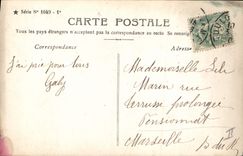 Série N° 1040 - 1°
CARTE POSTALE
Tous les pays étrangers n'acceptent pas la correspondance au recto. Se renseigner
Correspondance
Adresse
J'ai prié pour vous
Gaby
Mademoiselle
Marin rue
Terrusse prolongée
Pensionnat
Marseille
B du R